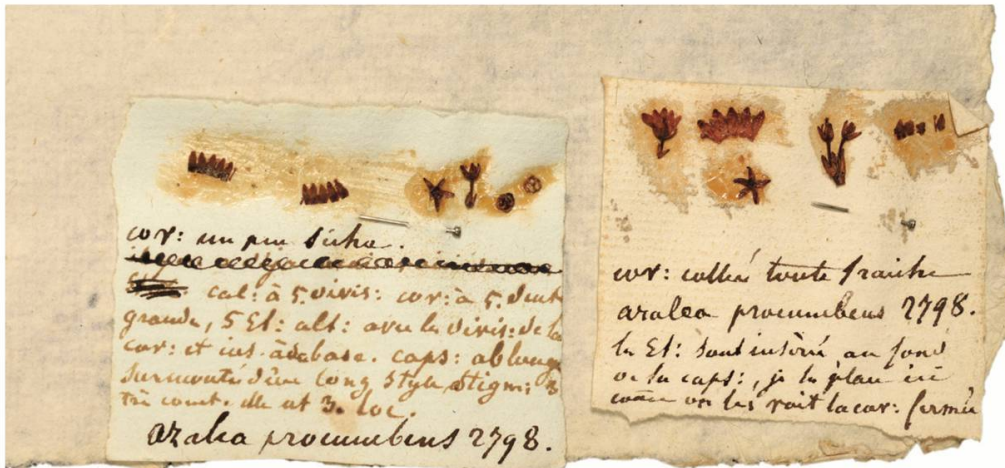 cor: un peu sèche.
cal: à 5. divis: cor: à 5. dent
grande, 5 Et: alt: avec les divis: de la
cor: et ins. à sa base. caps: ablongue
surmonté d'un long style, stigm: 3
très court. elle at 3. loc.
azalea procumbens 2798.
cor: collée toute fraiche
azalea procumbens 2798.
les Et: sont inséré au fond
de la caps:, je les place ici
comme on les voit la cor: fermée